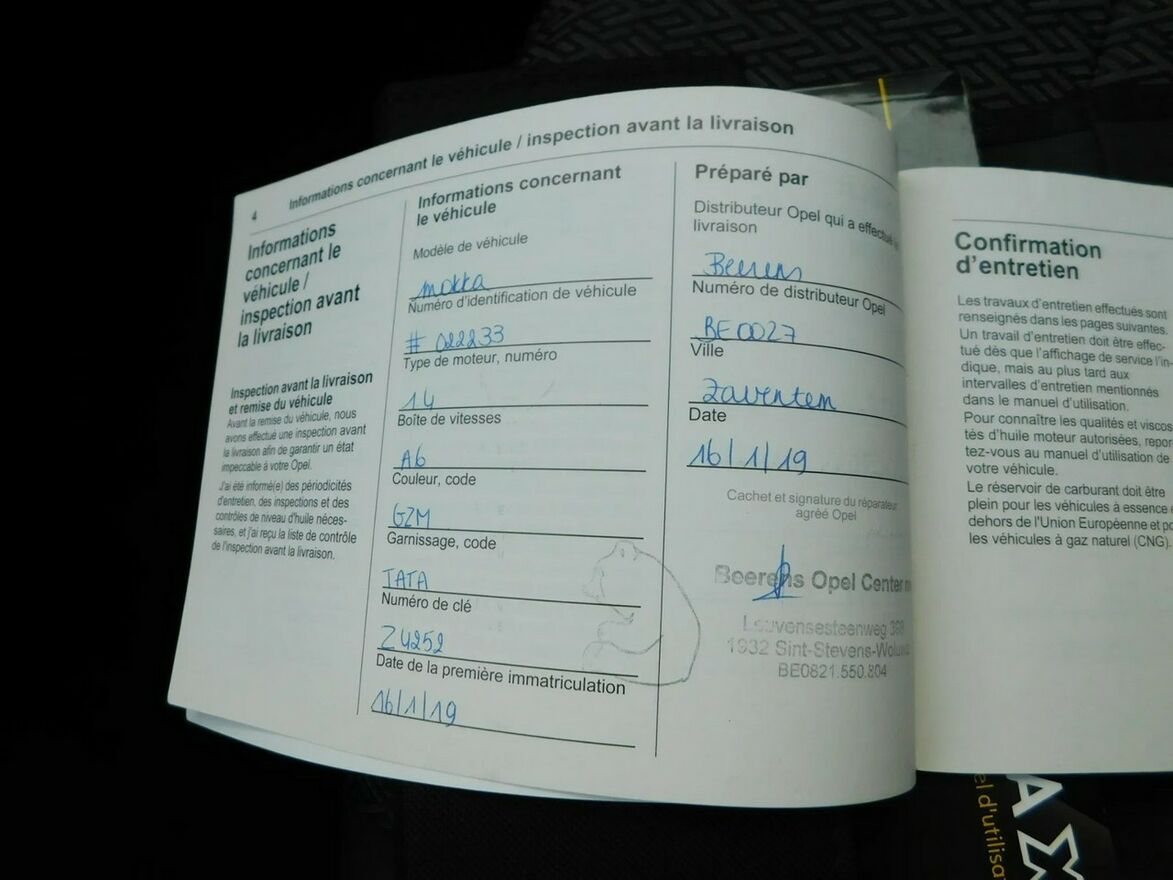 4 Informations concernant le véhicule / inspection avant la livraison
Informations
concernant le
véhicule /
inspection avant
la livraison
Inspection avant la livraison
et remise du véhicule
Avant la remise du véhicule, nous
avons effectué une inspection avant
la livraison afin de garantir un état
impeccable à votre Opel.
J'ai été informé(e) des périodicités
d'entretien, des inspections et des
contrôles de niveau d'huile néces-
saires, et j'ai reçu la liste de contrôle
de l'inspection avant la livraison.
Informations concernant
le véhicule
Modèle de véhicule
mokka
Numéro d'identification de véhicule
# 022233
Type de moteur, numéro
14
Boîte de vitesses
A6
Couleur, code
GZM
Garnissage, code
TATA
Numéro de clé
Z4252
Date de la première immatriculation
16/1/19
Préparé par
Distributeur Opel qui a effectué
livraison
Beerens
Numéro de distributeur Opel
BE0027
Ville
Zaventem
Date
16/1/19
Cachet et signature du réparateur
agréé Opel
Beerens Opel Center
Leuvensesteenweg
1932 Sint-Stevens-Woluwe
BE0821.550.804
Confirmation
d'entretien
Les travaux d'entretien effectués sont
renseignés dans les pages suivantes.
Un travail d'entretien doit être effec-
tué dès que l'affichage de service l'in-
dique, mais au plus tard aux
intervalles d'entretien mentionnés
dans le manuel d'utilisation.
Pour connaître les qualités et viscos
tés d'huile moteur autorisées, repor
tez-vous au manuel d'utilisation de
votre véhicule.
Le réservoir de carburant doit être
plein pour les véhicules à essence
dehors de l'Union Européenne et po
les véhicules à gaz naturel (CNG).
A X
el d'utilisa